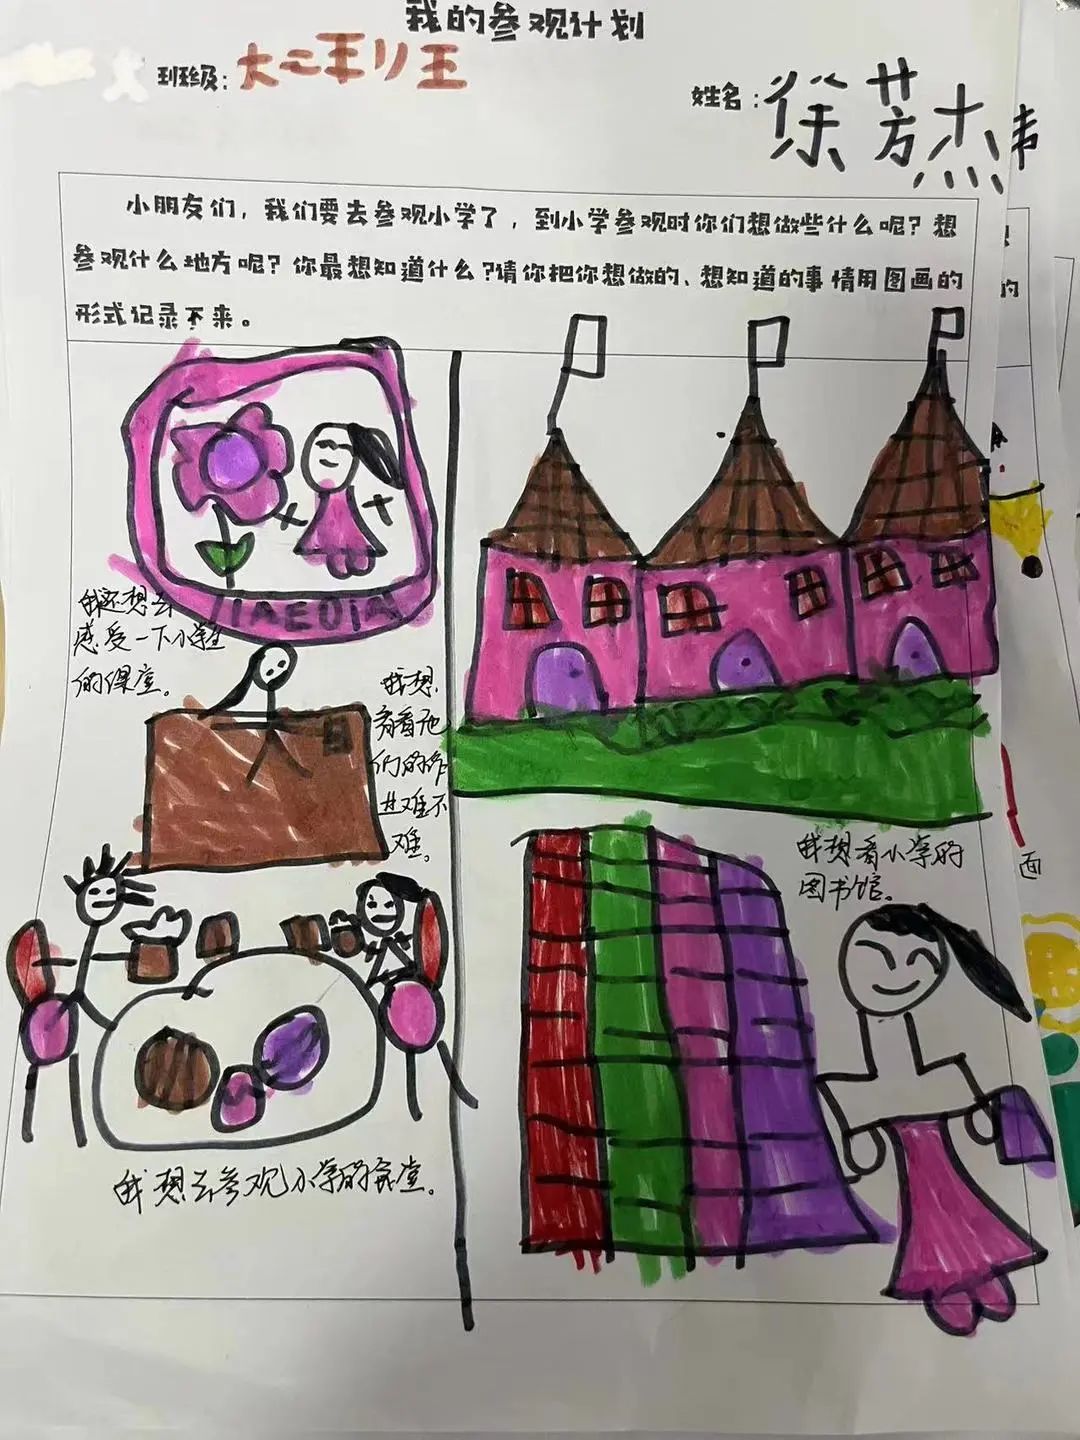 我的参观计划
班级：大二班
姓名：徐芳杰
小朋友们，我们要去参观小学了，到小学参观时你们想做些什么呢？想
参观什么地方呢？你最想知道什么？请你把你想做的、想知道的事情用图画的
形式记录下来。
我还想去
感受一下小学
的课堂。
我想
看看他
们的作
业难不
难。
我想看小学的
图书馆。
我想去参观小学的食堂。
的
面